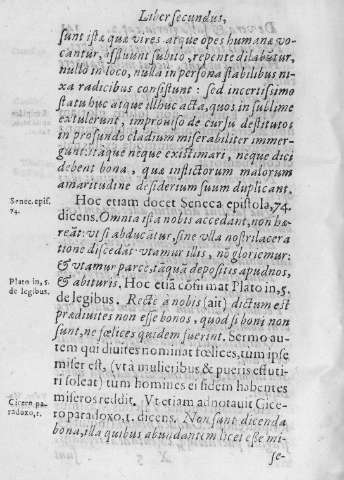 Liber secundus,
sunt istæ quæ vires atque opes humanæ vo-
cantur, affluunt subito, repente dilabũtur,
nullo in loco, nulla in persona stabilibus ni-
xa radicibus consistunt: sed incertissimo
statu huc atque illhuc acta, quos in sublime
extulerunt, improuiso de cursu destitutos
in profundo cladium miserabiliter immer-
gunt: itaque neque existimari, neque dici
debent bona, quæ inflictorum malorum
amaritudine desiderium suum duplicant.
Hoc etiam docet Seneca epistola, 74.
Senec. epis.
74.
dicens. Omnia ista nobis accedant, non hæ-
reãt: vt si abducãtur, sine vlla nostri lacera
tione discedãt: vtamur illis, nõ gloriemur:
& vtamur parce, tãquã depositis apud nos,
& abituris. Hoc etiã cõfirmat Plato in, 5.
Plato in, 5.
de legibus.
de legibus. Rectè à nobis (ait) dictum est
prædiuites non esse bonos, quod si boni non
sunt, ne fœlices quidem fuerint. Sermo au-
tem qui diuites nominat fœlices, tum ipse
miser est, (vt à mulieribus & pueris effuti-
ri soleat) tum homines ei fidem habentes
miseros reddit. Vt etiam adnotauit Cice-
Cicero, pa-
radoxo, 1.
ro paradoxo, 1. dicens. Non sunt dicenda
bona, illa quibus abundantem licet esse mi-
se-